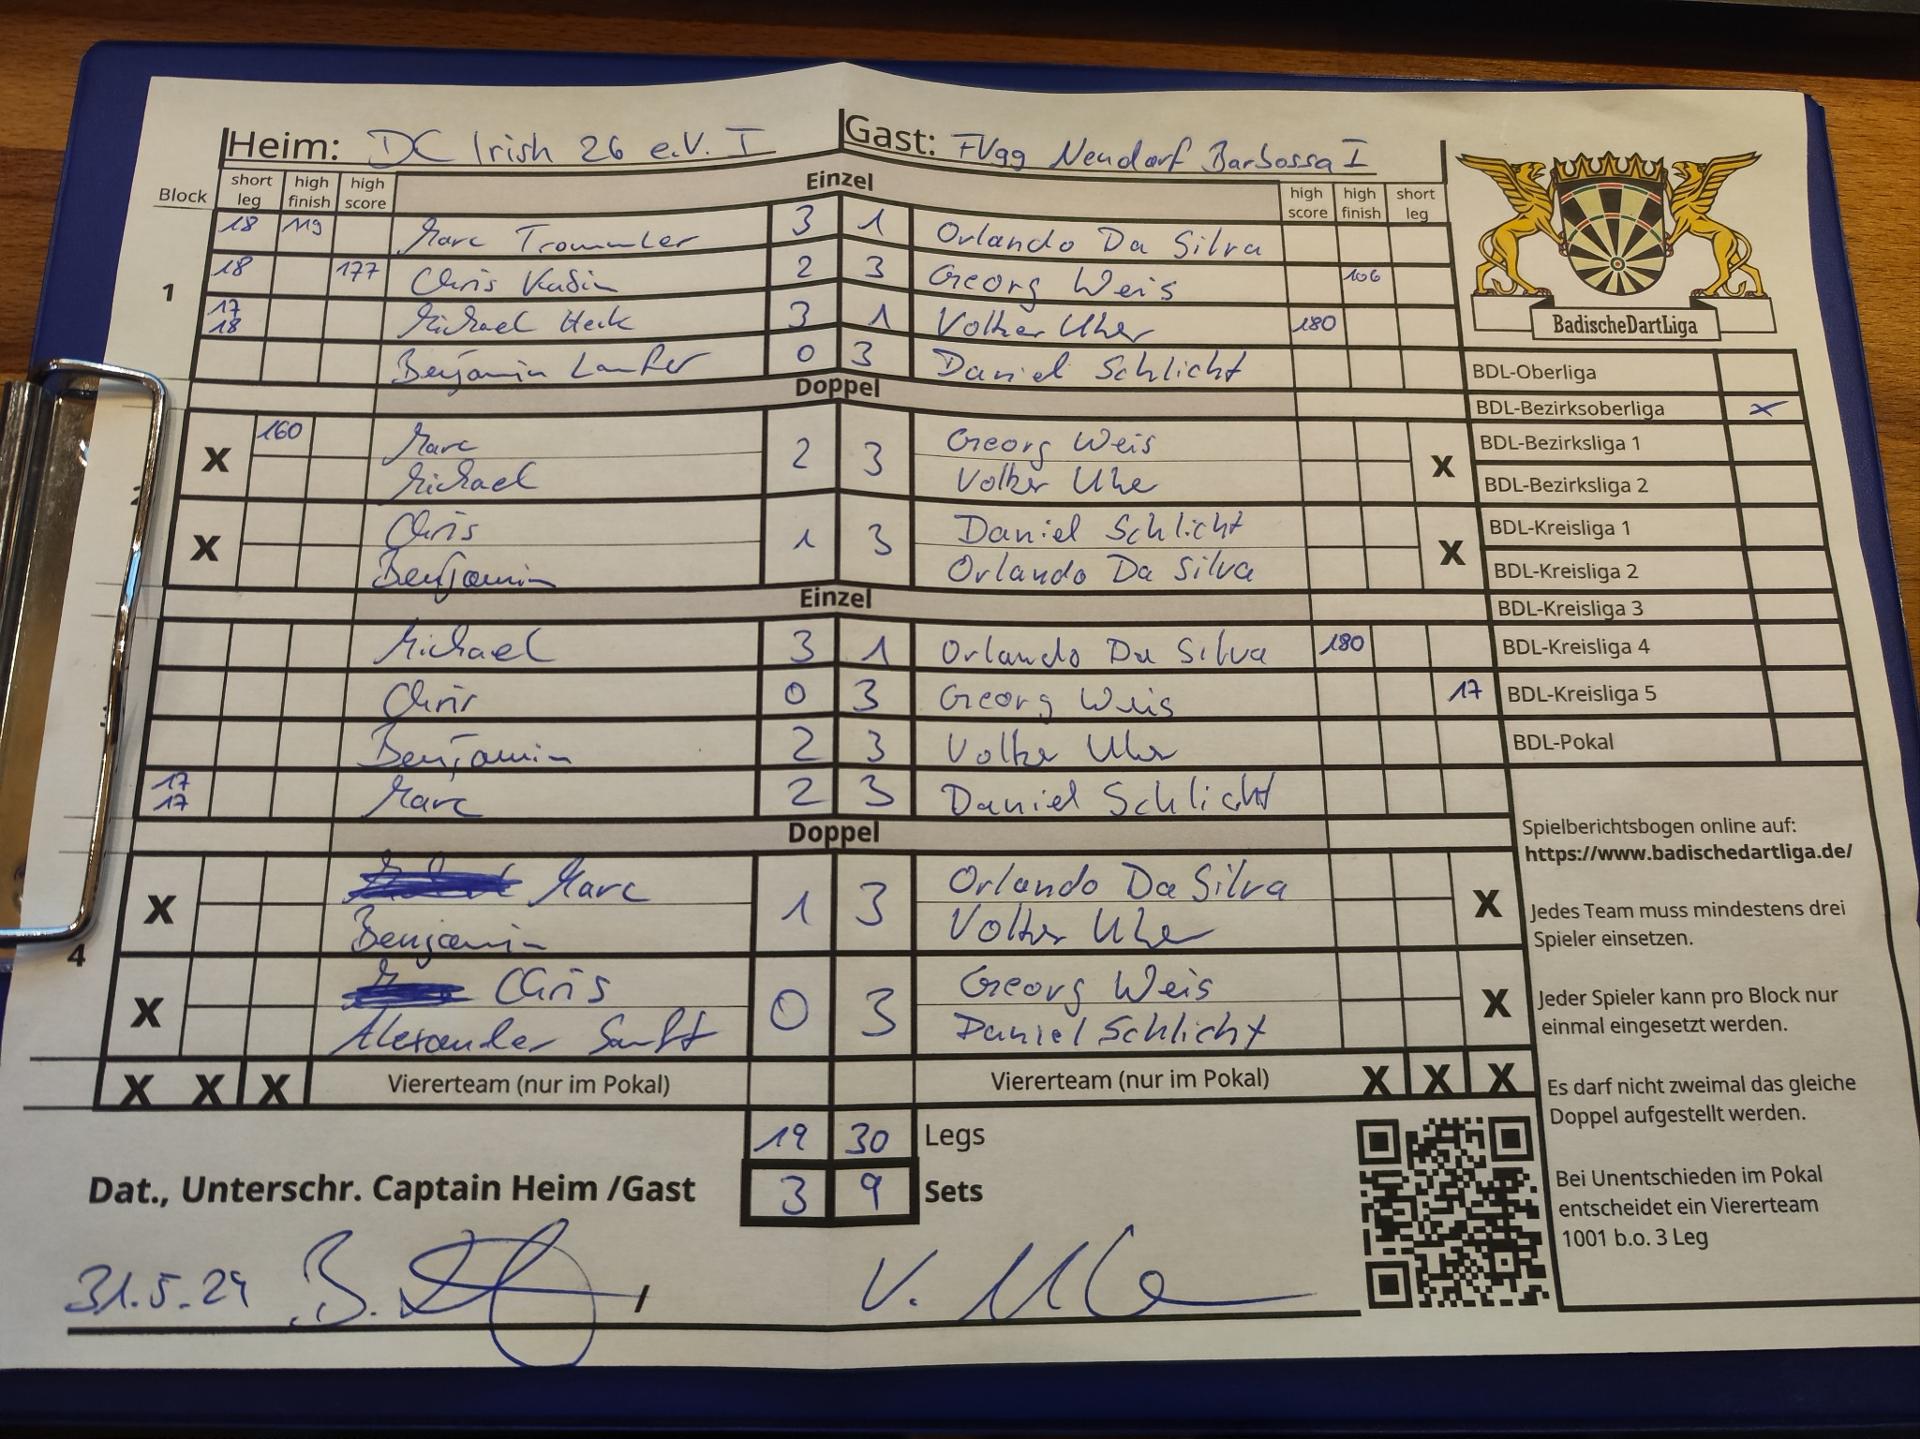 Heim: DC Irish 26 e.V. I Gast: FVgg Neudorf Barbossa I
Block short leg high finish high score Einzel high score high finish short leg
18 119 Marc Trommler 3 1 Orlando Da Silva
18 177 Chris 2 3 Georg Weis 106
1
17 18 Michael Heck 3 1 Volker Uhe 180
Benjamin 0 3 Daniel Schlicht
Doppel
X 160 Marc 2 3 Georg Weis X
Michael Volker Uhe
X Chris 1 3 Daniel Schlicht X
Benjamin Orlando Da Silva
Einzel
Michael 3 1 Orlando Da Silva 180
Chris 0 3 Georg Weis 17
Benjamin 2 3 Volker Uhe
17 17 Marc 2 3 Daniel Schlicht
Doppel
X Marc 1 3 Orlando Da Silva X
Benjamin Volker Uhe
4
X Chris 0 3 Georg Weis X
Alexander Daniel Schlicht
X X X Viererteam (nur im Pokal) Viererteam (nur im Pokal) X X X
19 30 Legs
Dat., Unterschr. Captain Heim /Gast 3 9 Sets
31.5.24 B. / V. Uhe
BadischeDartLiga
BDL-Oberliga
BDL-Bezirksoberliga x
BDL-Bezirksliga 1
BDL-Bezirksliga 2
BDL-Kreisliga 1
BDL-Kreisliga 2
BDL-Kreisliga 3
BDL-Kreisliga 4
BDL-Kreisliga 5
BDL-Pokal
Spielberichtsbogen online auf:
https://www.badischedartliga.de/
Jedes Team muss mindestens drei
Spieler einsetzen.
Jeder Spieler kann pro Block nur
einmal eingesetzt werden.
Es darf nicht zweimal das gleiche
Doppel aufgestellt werden.
Bei Unentschieden im Pokal
entscheidet ein Viererteam
1001 b.o. 3 Leg